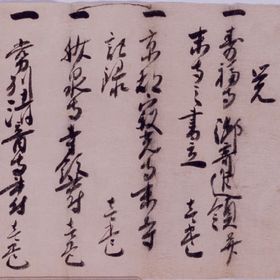 覚
一 寿福寺御寄進領并
末寺之書立 壱巻
一 京都寂光寺末寺
記録 壱巻
一 妙泉寺寺 壱巻
一 常列清音寺末寺 壱巻